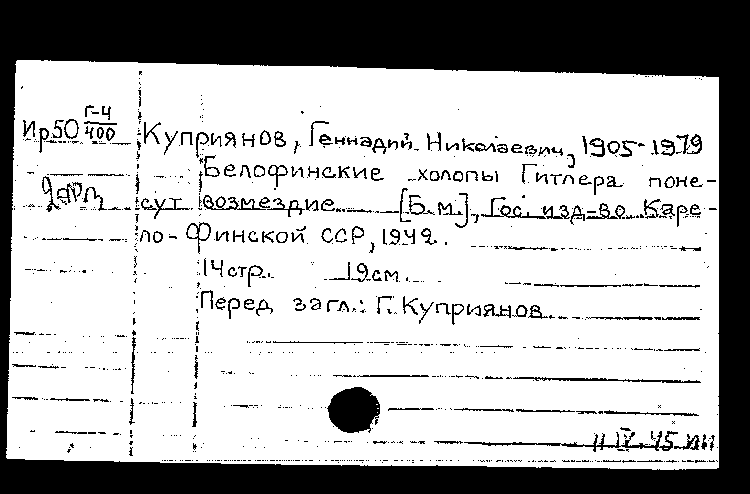 Ир50 Г-4/400
Куприянов, Геннадий Николаевич, 1905-1979
Белофинские холопы Гитлера поне-
сут возмездие [Б.м.], Гос. изд-во Каре-
ло-Финской ССР, 1942.
14 стр. 19 см.
Перед загл.: Г. Куприянов
11 IV.45